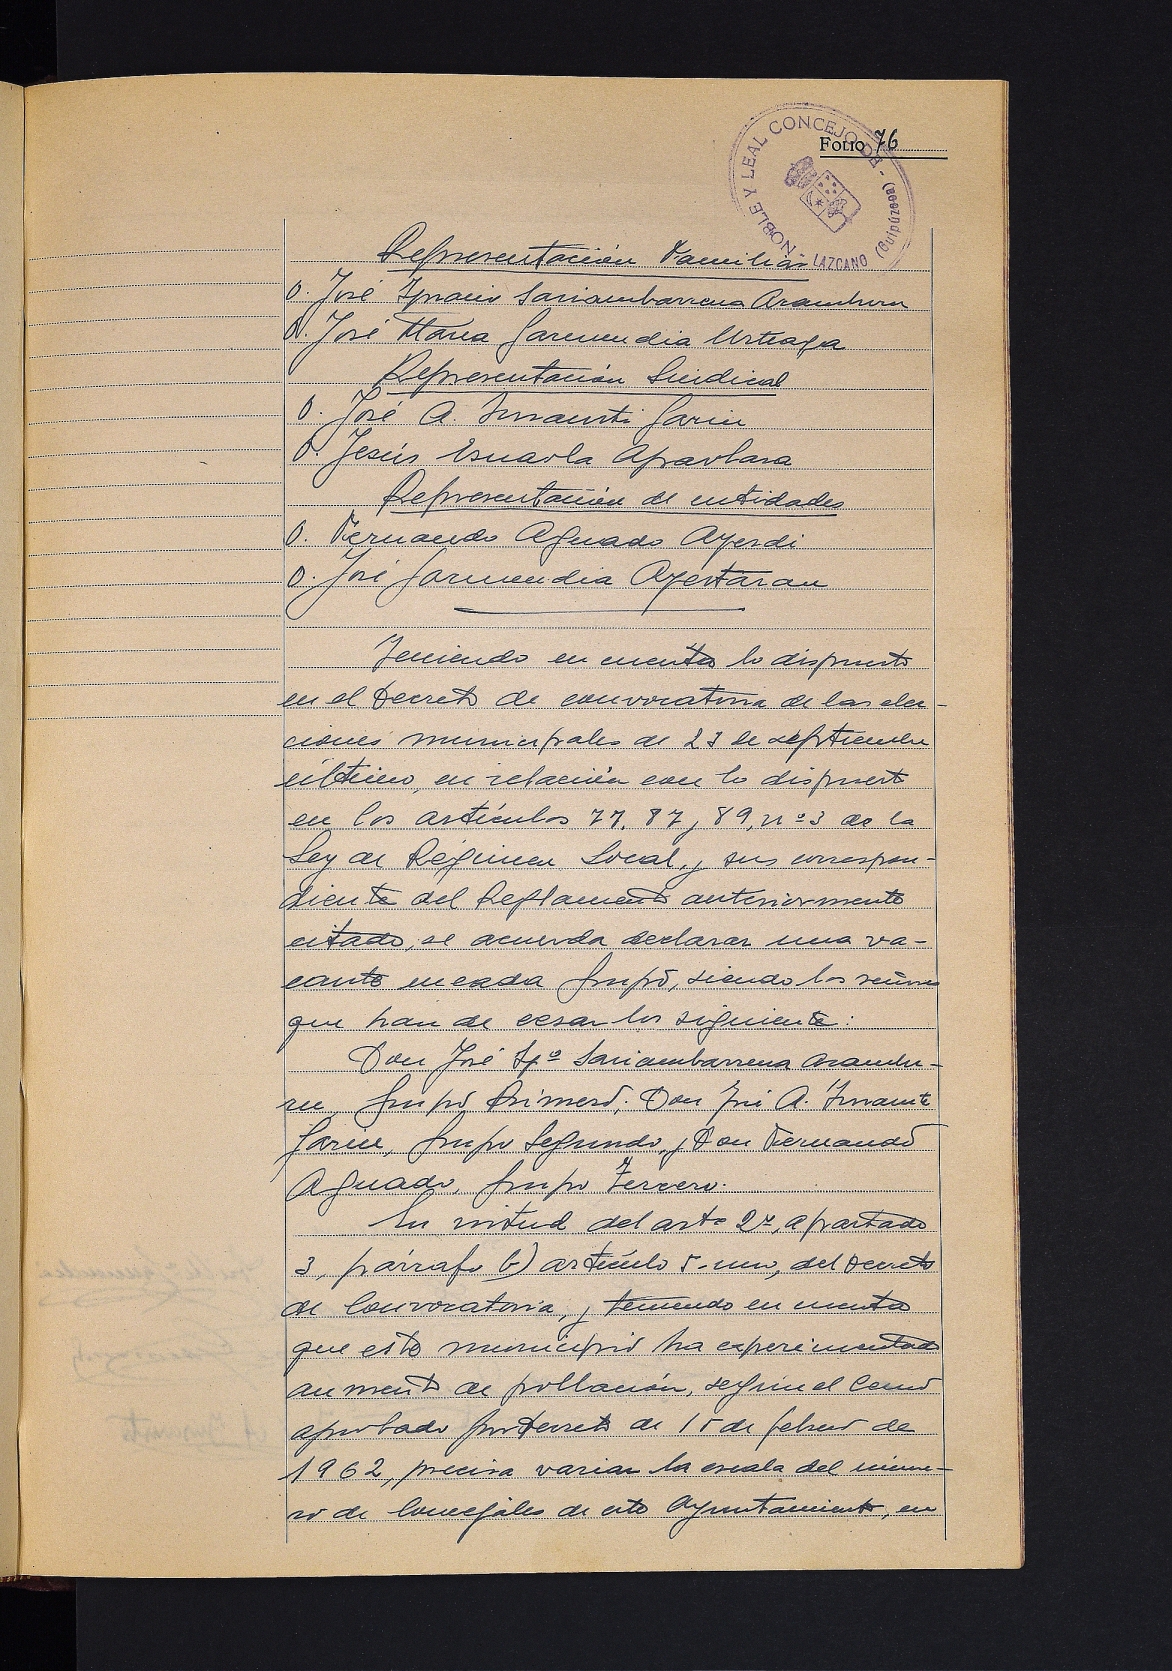 NOBLE Y LEAL CONCEJO DE - LAZCANO (Guipúzcoa)
Folio 76
Representación Familiar
D. José Ignacio Sariambarrena Aramburu
D. José María Garmendia Urteaga
Representación Sindical
D. José A. Insausti Garin
D. Jesús Esnaola Apaolaza
Representación de entidades
D. Fernando Aguado Ayerdi
D. José Garmendia Ayestaran
Teniendo en cuenta lo dispuesto
en el Decreto de convocatoria de las elec-
ciones municipales de 23 de septiembre
último, en relación con lo dispuesto
en los artículos 77, 87 y 89, nº 3 de la
Ley de Régimen Local, y sus correspon-
diente del Reglamento anteriormente
citado, se acuerda declarar una va-
cante en cada Grupo, siendo los señores
que han de cesar los siguiente:
Don José Igº Sariambarrena Arambu-
ru, Grupo Primero; Don José A. Insausti
Garin, Grupo Segundo, y Don Fernando
Aguado, Grupo Tercero.
En virtud del artº 2º, apartado
3, párrafo b) artículo 5-uno, del Decreto
de Convocatoria, y teniendo en cuenta
que este municipio ha experimentado
aumento de población, según el Censo
aprobado por Decreto de 15 de febrero de
1962, precisa variar la escala del núme-
ro de Concejales de este Ayuntamiento, en